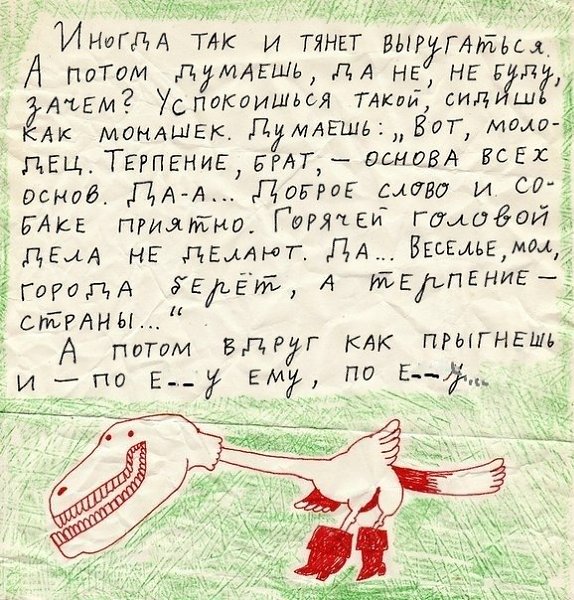 Иногда так и тянет выругаться.
А потом думаешь, да не, не буду,
зачем? Успокоишься такой, сидишь
как монашек. Думаешь: „Вот, моло-
дец. Терпение, брат, – основа всех
основ. Да-а... Доброе слово и со-
баке приятно. Горячей головой
дела не делают. Да... Веселье, мол,
города берёт, а терпение –
страны..."
А потом вдруг как прыгнешь
и – по е--у ему, по е--у...